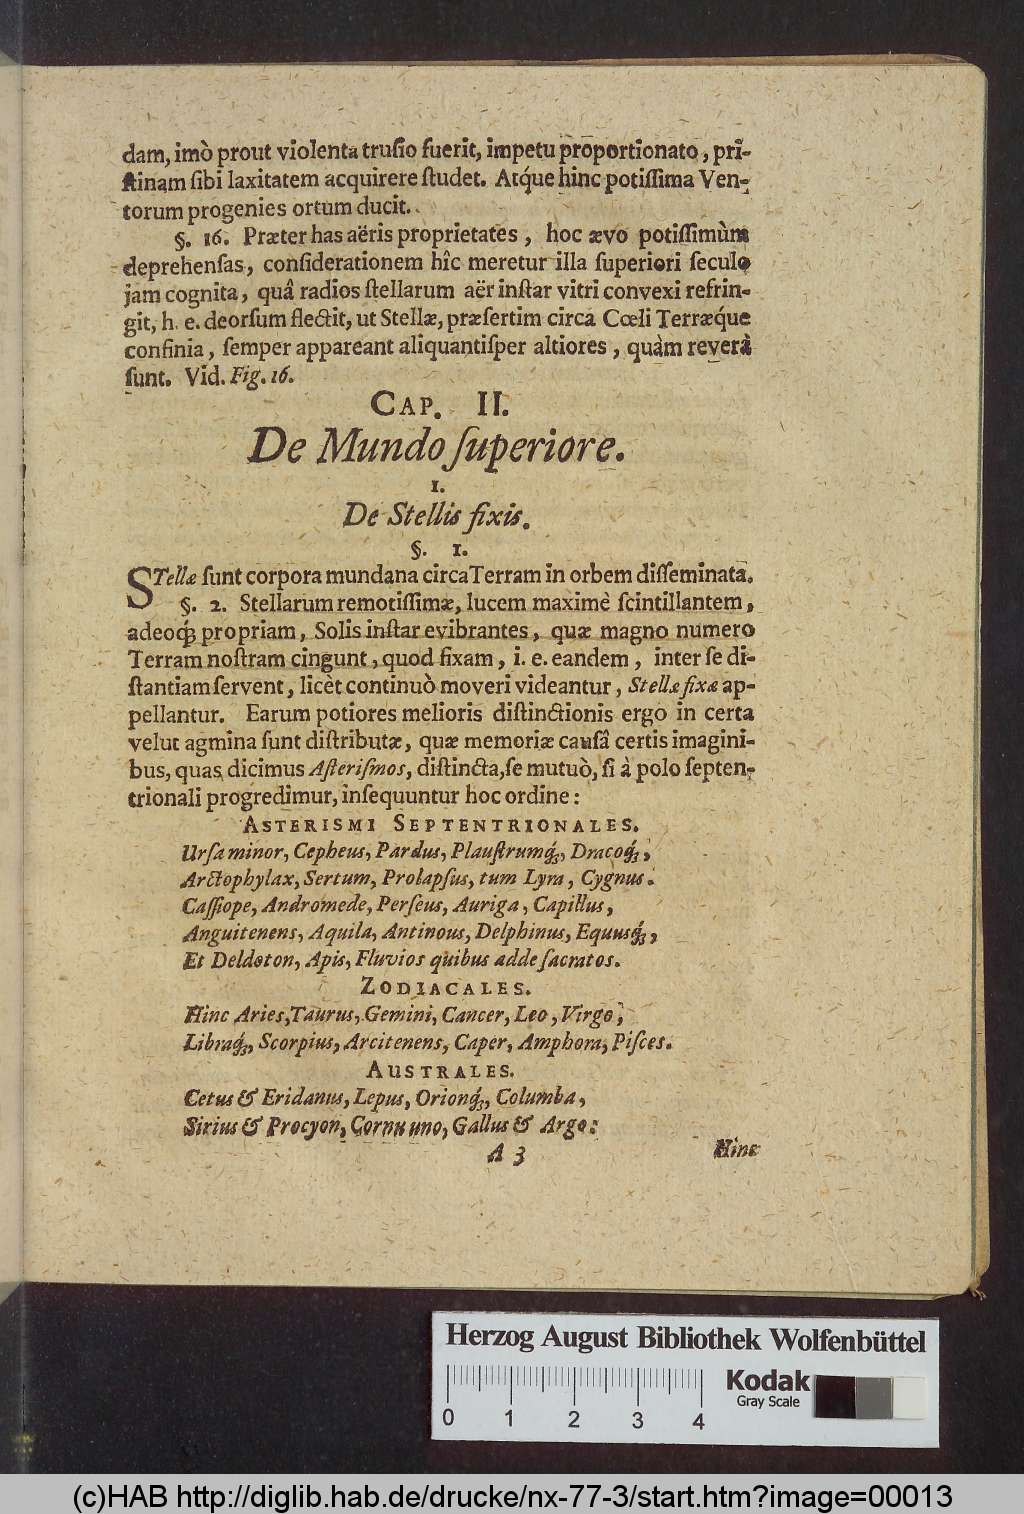 dam, imò prout violenta trusio fuerit, impetu proportionato, pri-
ſtinam ſibi laxitatem acquirere ſtudet. Atq́ue hinc potiſſima Ven-
torum progenies ortum ducit.
§. 16. Præter has aëris proprietates, hoc ævo potiſſimùm
deprehenſas, conſiderationem hîc meretur illa ſuperiori ſeculo
jam cognita, quâ radios ſtellarum aër inſtar vitri convexi refrin-
git, h. e. deorſum flectit, ut Stellæ, præſertim circa Cœli Terræq́ue
confinia, ſemper appareant aliquantiſper altiores, quàm reverà
ſunt. Vid. Fig. 16.
CAP. II.
De Mundo ſuperiore.
1.
De Stellis fixis.
§. 1.
STellæ ſunt corpora mundana circa Terram in orbem diſſeminata.
§. 2. Stellarum remotiſſimæ, lucem maximè ſcintillantem,
adeoq́; propriam, Solis inſtar evibrantes, quæ magno numero
Terram noſtram cingunt, quod fixam, i. e. eandem, inter ſe di-
ſtantiam ſervent, licèt continuò moveri videantur, Stellæ fixæ ap-
pellantur. Earum potiores melioris diſtinctionis ergo in certa
velut agmina ſunt diſtributæ, quæ memoriæ cauſâ certis imagini-
bus, quas dicimus Aſteriſmos, diſtincta, ſe mutuò, ſi à polo ſepten-
trionali progredimur, inſequuntur hoc ordine:
ASTERISMI SEPTENTRIONALES.
Urſa minor, Cepheus, Pardus, Plauſtrumq́;, Dracoq́;,
Arctophylax, Sertum, Prolapſus, tum Lyra, Cygnus.
Caſſiope, Andromede, Perſeus, Auriga, Capillus,
Anguitenens, Aquila, Antinous, Delphinus, Equusq́;,
Et Deldoton, Apis, Fluvios quibus adde ſacratos.
ZODIACALES.
Hinc Aries, Taurus, Gemini, Cancer, Leo, Virgo,
Libraq́;, Scorpius, Arcitenens, Caper, Amphora, Piſces.
AUSTRALES.
Cetus & Eridanus, Lepus, Orionq́;, Columba,
Sirius & Procyon, Cornu uno, Gallus & Argo:
A 3 Hinc
Herzog August Bibliothek Wolfenbüttel
Kodak
Gray Scale
0 1 2 3 4
(c)HAB http://diglib.hab.de/drucke/nx-77-3/start.htm?image=00013